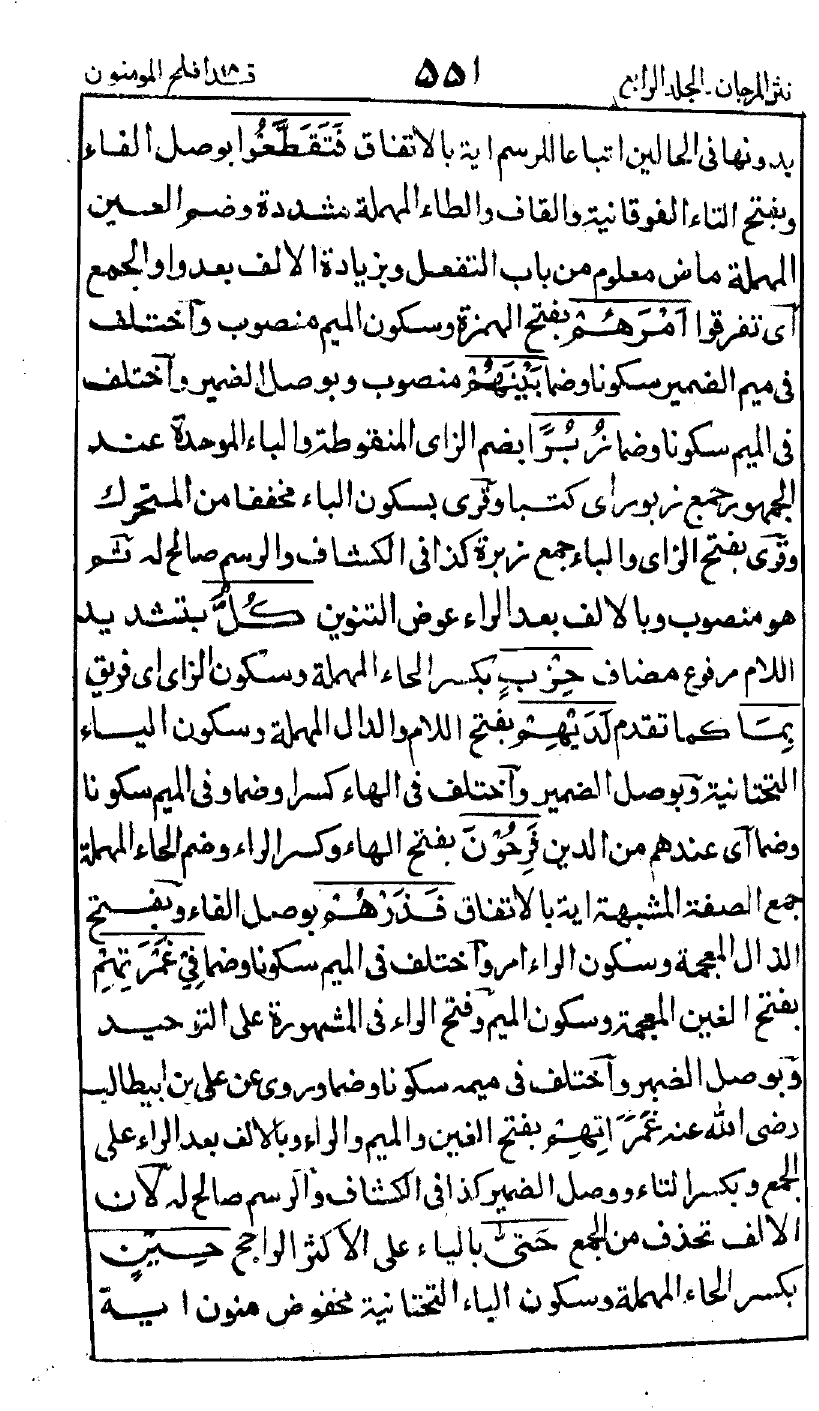 نثر المرجان - الجلد الرابع ۵۵۱ قد افلح ١٨ المومنون
بدونها فى الحالين اتباعا للرسم اية بالاتفاق فَتَقَطَّعُوا بوصل الفاء
وبفتح التاء الفوقانية والقاف والطاء المهملة مشددة وضم العين
المهملة ماض معلوم من باب التفعل وبزيادة الالف بعد واو الجمع
آى تفرقوا اَمْرَهُمْ بفتح الهمزة وسكون الميم منصوب وآختلف
فى ميم الضمير سكونا وضما بَيْنَهُمْ منصوب وبوصل الضمير وآختلف
فى الميم سكونا وضما زُبُرًا بضم الزاى المنقوطة والباء الموحدة عند
الجمهور جمع زبور اى كتبا وقرى بسكون الباء مخففا من المتحرك
وقرى بفتح الزاى والباء جمع زبرة كذا فى الكشاف والرسم صالح له ثم
هو منصوب وبالالف بعد الراء عوض التنوين كُلُّ بتشديد
اللام مرفوع مضاف حِزْبٍ بكسر الحاء المهملة وسكون الزاى اى فريق
بِمَا كما تقدم لَدَيْهِمْ بفتح اللام والدال المهملة وسكون الياء
التحتانية وبوصل الضمير وآختلف فى الهاء كسرا وضما وفى الميم سكونا
وضما آى عندهم من الدين فَرِحُوْنَ بفتح الهاء وكسر الراء وضم الحاء المهملة
جمع الصفة المشبهة اية بالاتفاق فَذَرْهُمْ بوصل الفاء وبفتح
الذال المعجمة وسكون الراء امر وآختلف فى الميم سكونا وضما فِيْ غَمْرَتِهِمْ
بفتح الغين المعجمة وسكون الميم وفتح الراء فى المشهورة على التوحيد
وبوصل الضمير وآختلف فى ميمه سكونا وضما وروى عن على بن ابيطالب
رضى الله عنه غَمَرَاتِهِمْ بفتح الغين والميم والراء وبالالف بعد الراء على
الجمع وبكسر التاء ووصل الضمير كذا فى الكشاف والرسم صالح له لآن
الالف تحذف من الجمع حَتّٰى بالياء على الاكثر الراجح حِيْنٍ
بكسر الحاء المهملة وسكون الياء التحتانية مخفوض منون اية